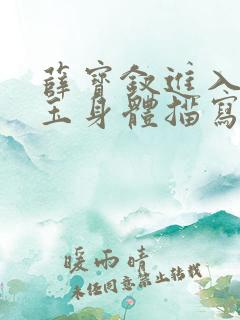 薛寶釵進入
玉身體描寫
暖雨晴
未經同意禁止轉載